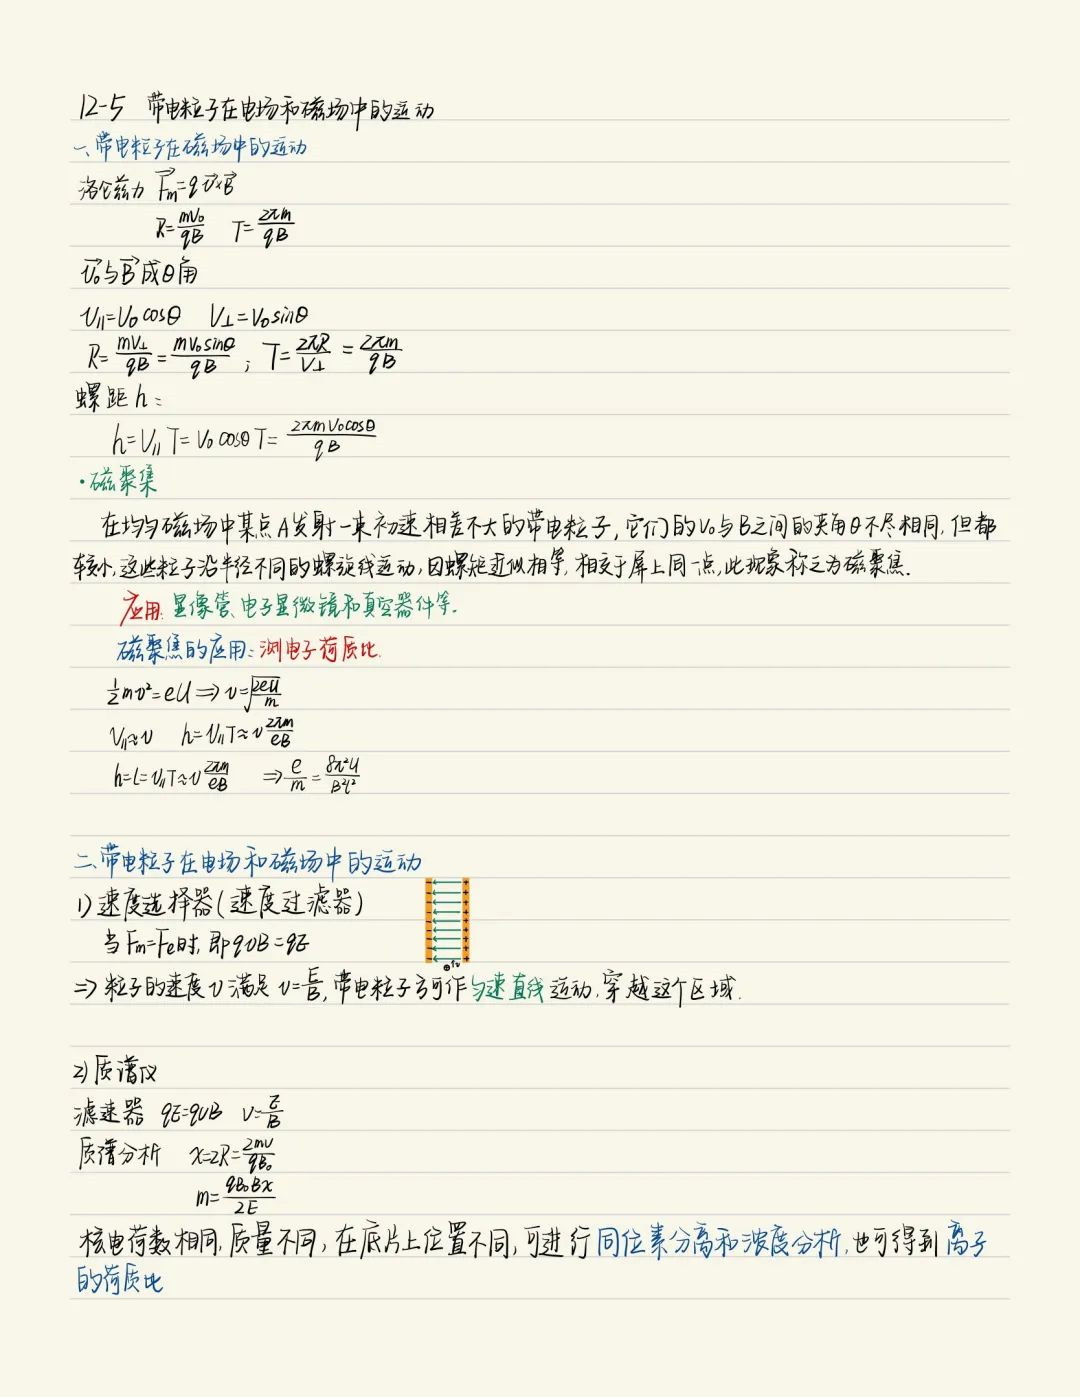 12-5 带电粒子在电场和磁场中的运动
一、带电粒子在磁场中的运动
洛仑兹力 F⃗m=qv⃗×B⃗
R=mv₀/qB T=2πm/qB
v⃗₀与B⃗成θ角
v∥=v₀cosθ v⊥=v₀sinθ
R=mv⊥/qB=mv₀sinθ/qB ; T=2πR/v⊥=2πm/qB
螺距h:
h=v∥T=v₀cosθT=2πmv₀cosθ/qB
·磁聚集
在均匀磁场中某点A发射一束初速相差不大的带电粒子,它们的v₀与B之间的夹角θ不尽相同,但都
较小,这些粒子沿半径不同的螺旋线运动,因螺距近似相等,相交于屏上同一点,此现象称之为磁聚焦.
应用:显像管、电子显微镜和真空器件等.
磁聚焦的应用:测电子荷质比.
½mv²=eU⇒v=√(2eU/m)
v∥≈v h=v∥T≈v2πm/eB
h=l=v∥T≈v2πm/eB ⇒e/m=8π²U/B²l²
二、带电粒子在电场和磁场中的运动
1)速度选择器(速度过滤器)
当Fm=Fe时,即qvB=qE
⇒粒子的速度v满足v=E/B,带电粒子方可作匀速直线运动,穿越这个区域.
2)质谱仪
滤速器 qE=qvB v=E/B
质谱分析 x=2R=2mv/qB₀
m=qB₀Bx/2E
核电荷数相同,质量不同,在底片上位置不同,可进行同位素分离和浓度分析,也可得到离子
的荷质比